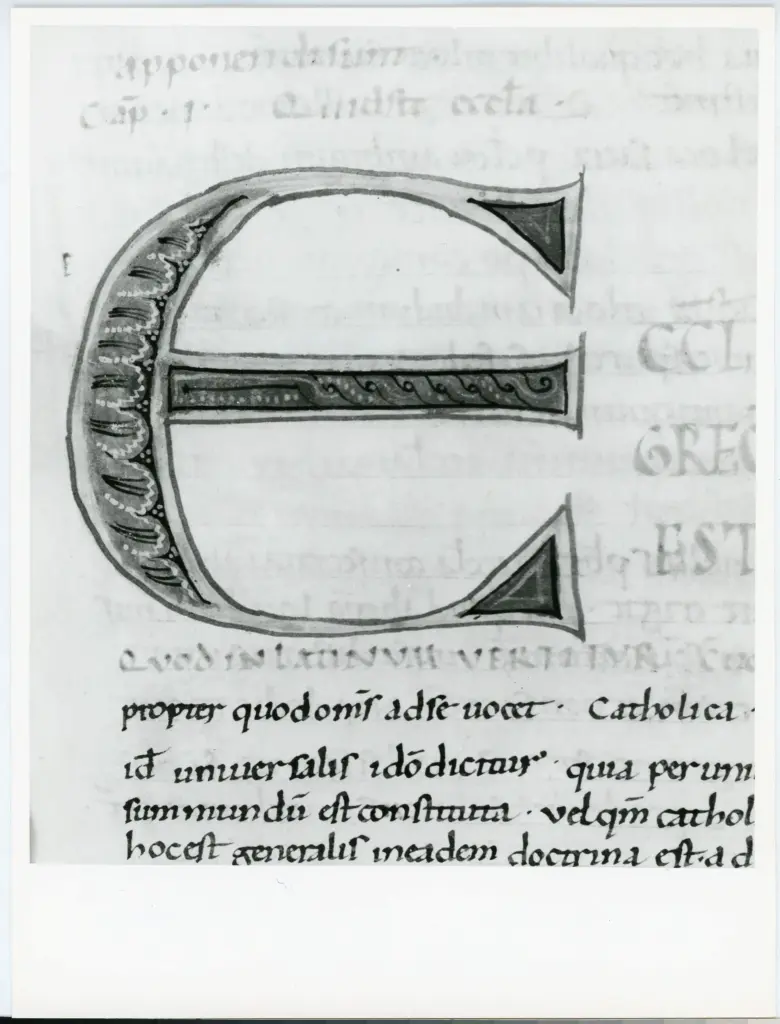 apponendisunt.
Cap̄ · 1 · Quiditē ecctā ·
E
CCL
GREC
EST
QUOD IN LATINUM VERTITUR
propter quod om̄ſ adſe uocet · Catholica ·
id̄ uniuerſaliſ idōdicitur · quia per uni
ſummundū eſt conſtituta · vel qm̄ cathol
hoceſt generaliſ ineadem doctrina eſt · a d